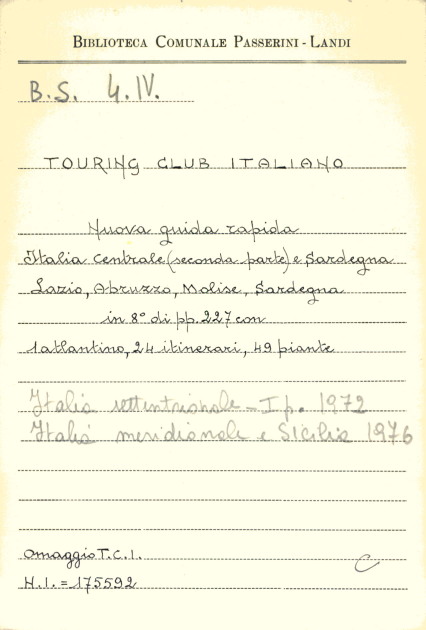 BIBLIOTECA COMUNALE PASSERINI - LANDI
B.S. 4.IV.
TOURING CLUB ITALIANO
Nuova guida rapida
Italia centrale (seconda parte) e Sardegna
Lazio, Abruzzo, Molise, Sardegna
in 8° di pp. 227 con
1 atlantino, 24 itinerari, 49 piante
Italia settentrionale - I p. 1972
Italia meridionale e Sicilia 1976
Omaggio T.C.I.
C
N.I. = 175592